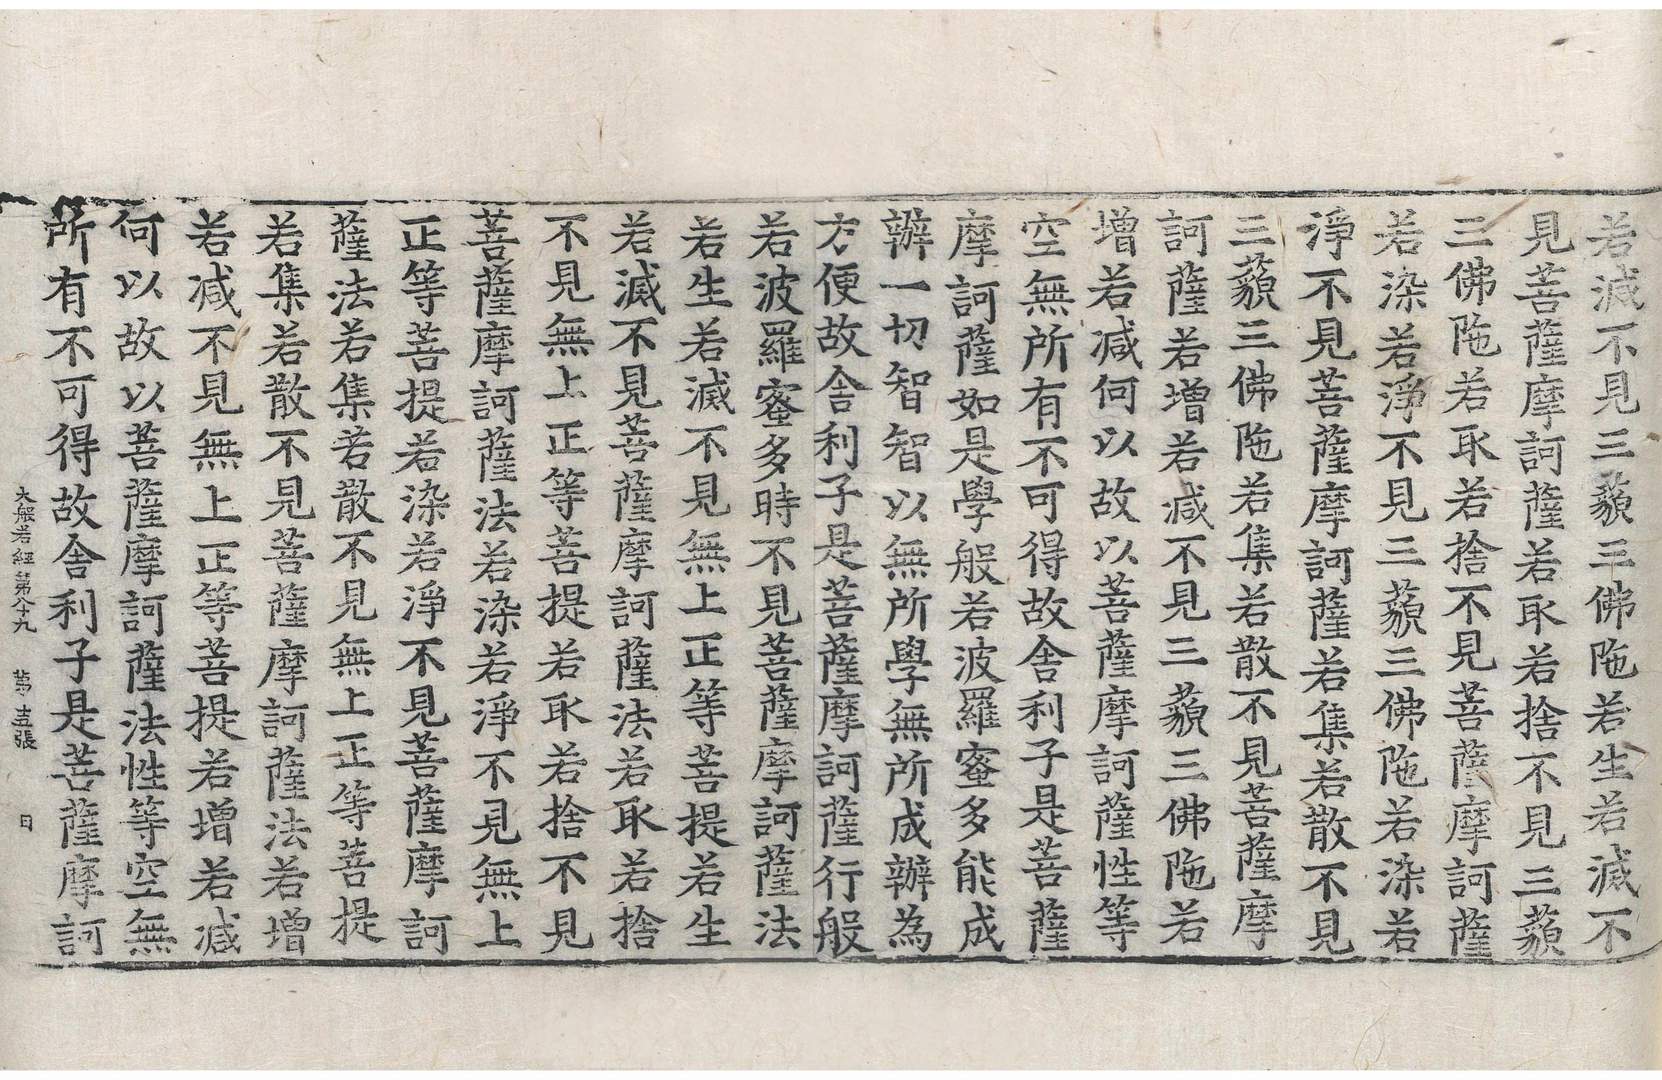 若滅不見三藐三佛陁若生若滅不
見菩薩摩訶薩若取若捨不見三藐
三佛陁若取若捨不見菩薩摩訶薩
若染若淨不見三藐三佛陁若染若
淨不見菩薩摩訶薩若集若散不見
三藐三佛陁若集若散不見菩薩摩
訶薩若增若減不見三藐三佛陁若
增若減何以故以菩薩摩訶薩性等
空無所有不可得故舍利子是菩薩
摩訶薩如是學般若波羅蜜多能成
辦一切智智以無所學無所成辦為
方便故舍利子是菩薩摩訶薩行般
若波羅蜜多時不見菩薩摩訶薩法
若生若滅不見無上正等菩提若生
若滅不見菩薩摩訶薩法若取若捨
不見無上正等菩提若取若捨不見
菩薩摩訶薩法若染若淨不見無上
正等菩提若染若淨不見菩薩摩訶
薩法若集若散不見無上正等菩提
若集若散不見菩薩摩訶薩法若增
若減不見無上正等菩提若增若減
何以故以菩薩摩訶薩法性等空無
所有不可得故舍利子是菩薩摩訶
大般若經第八十九 第 張 日